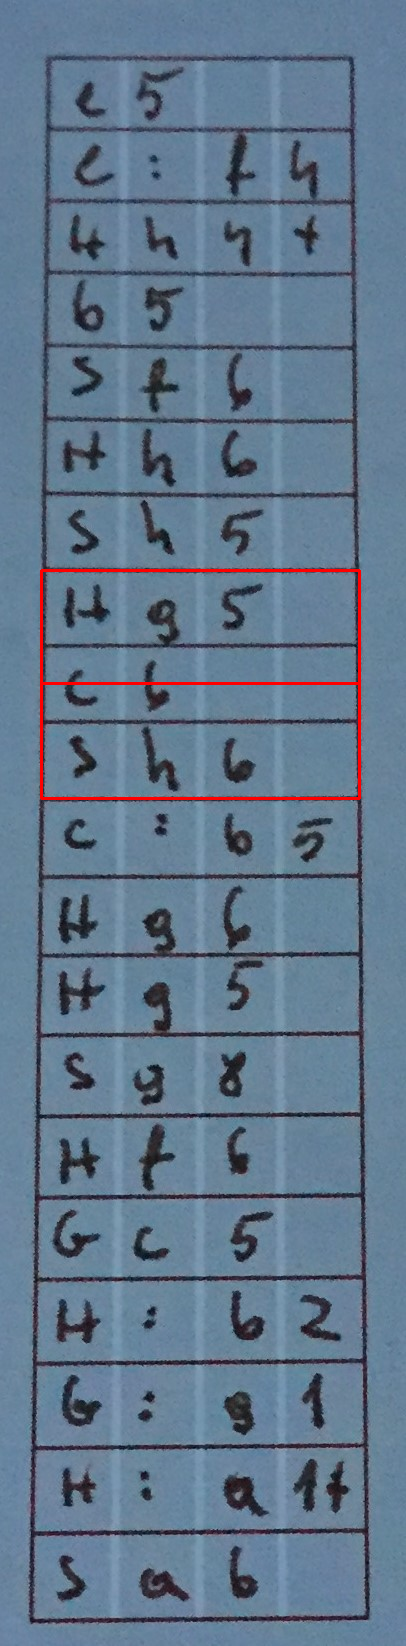 e5
e:f4
Hh4+
b5
Sf6
Hh6
Sh5
Hg5
c6
Sh6
c:b5
Hg6
Hg5
Sg8
Hf6
Gc5
H:b2
G:g1
H:a1+
Sa6